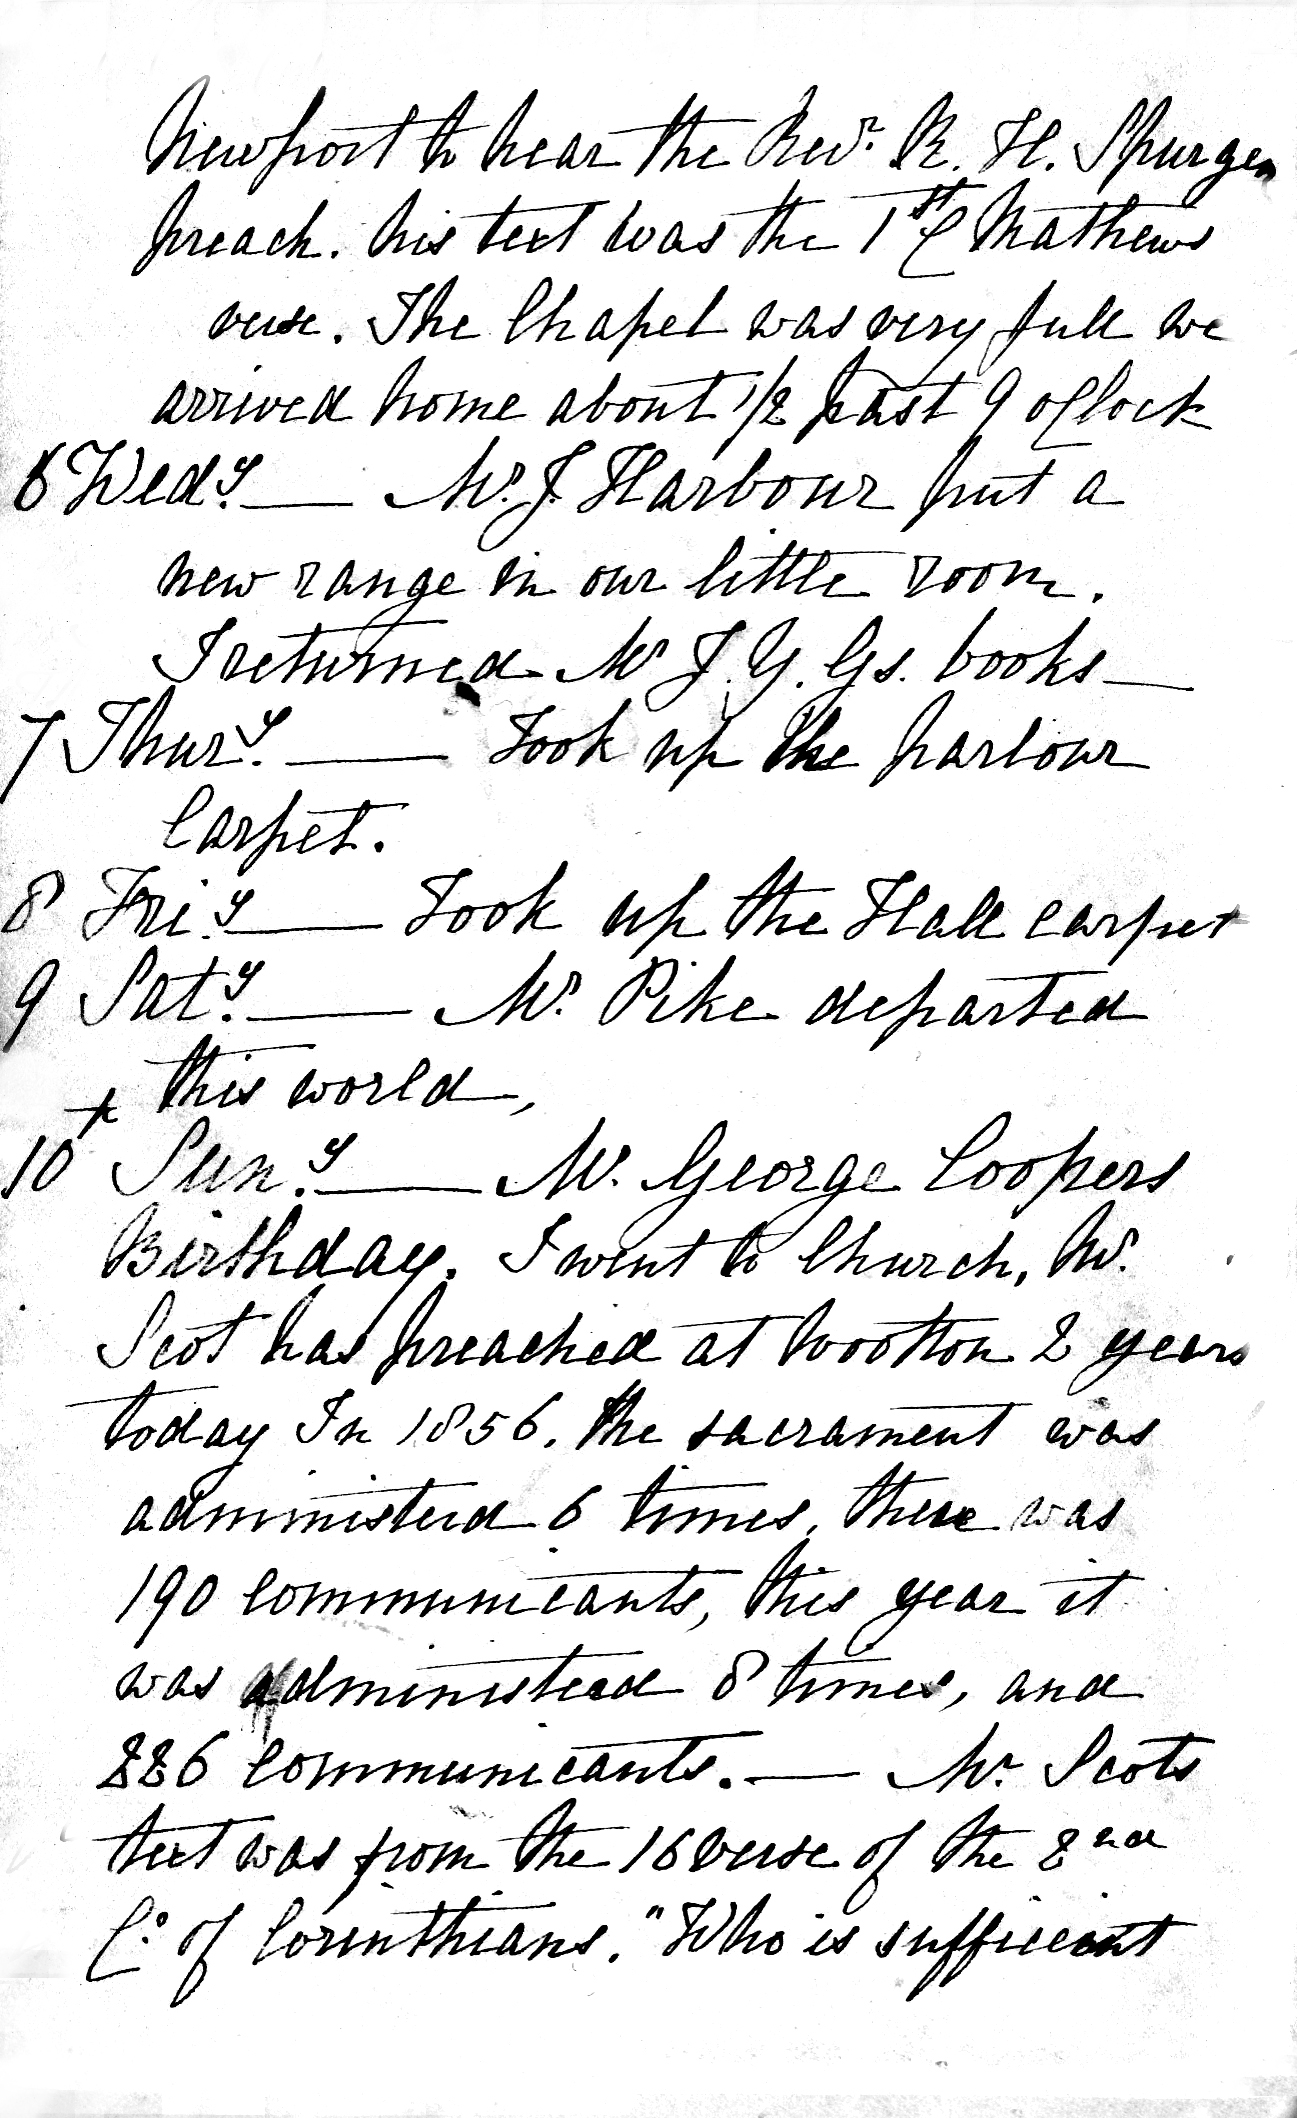 Newport to hear the Revr. R. H. Spurgen
preach. his text was the 1st C Mathews
verse. The Chapel was very full we
arrived home about 1/2 past 9 oClock
6 Wedy. — Mr. J. Harbour put a
new range in our little room.
I returned Mr J. Y. Gs. books —
7 Thury. — Took up the parlour
Carpet.
8 Fri.y — Took up the Hall carpet
9 Saty. — Mr. Pike departed
x this world,
10 Sun.y — Mr. George Coopers
Birthday. I went to Church, Mr.
Scot has preached at Wootton 2 years
today In 1856. the sacrament was
administerd 6 times, there was
190 communicants, this year it
was administerd 8 times, and
226 communicants. — Mr. Scots
text was from the 16 verse of the 2nd
C: of Corinthians. "Who is sufficient